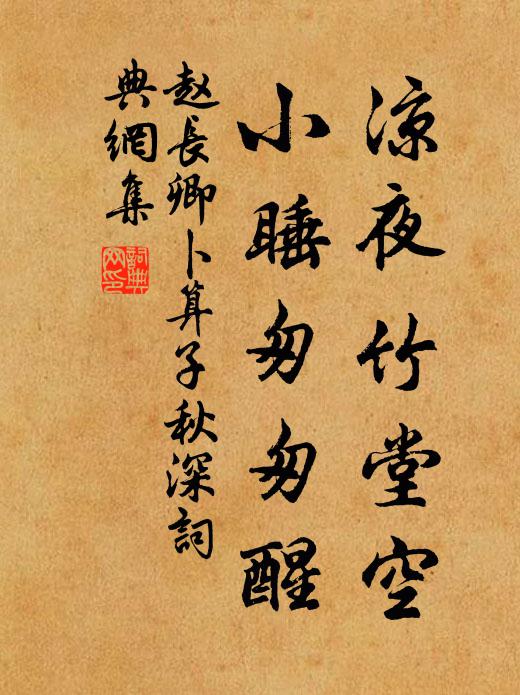 凉夜竹堂空
小睡匆匆醒
赵長卿卜算子秋深詞
典網集
詞典
网印